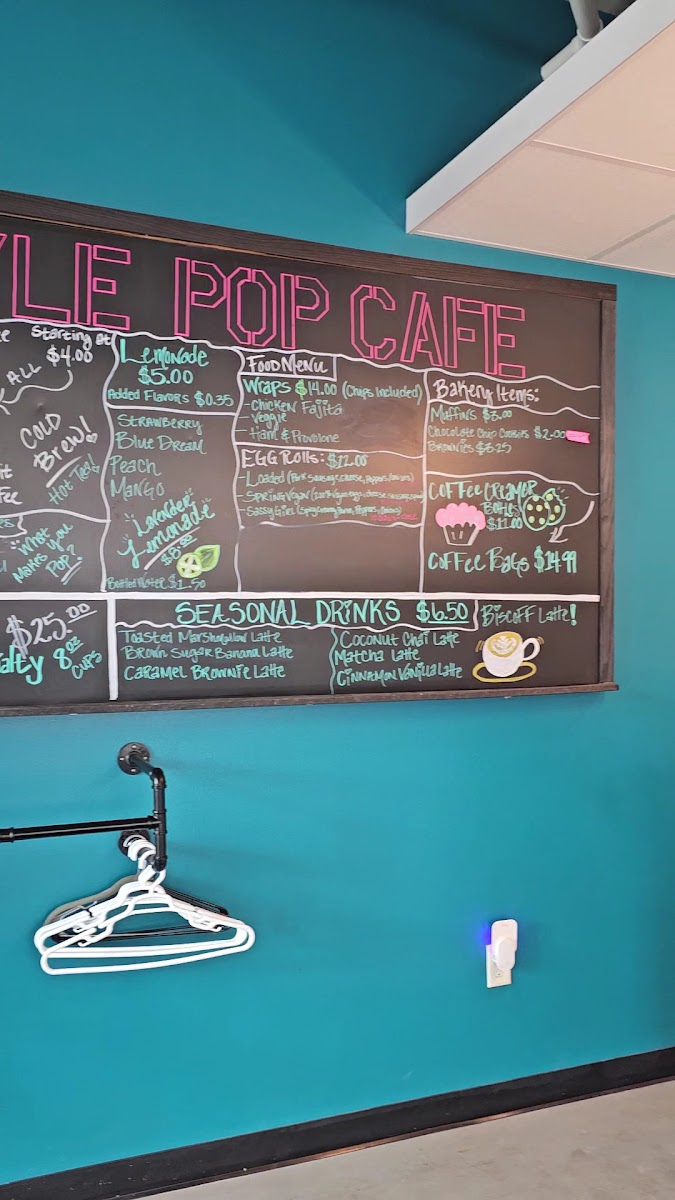 YLE POP CAFE
Starting at
$4.00
ALL
COLD
BREW!
HOT TEA!
What
Makes You
Pop?
$25.00
8oz
CUPS
Lemonade
$5.00
Added Flavors $0.35
STRAWBERRY
BLUE DREAM
PEACH
MANGO
Lavender
Lemonade
Bottled Water $1.50
FOOD MENU
WRAPS $14.00 (Chips Included)
- Chicken Fajita
- Veggie
- Ham & Provolone
EGG ROLLS: $12.00
- Loaded
- Spring Vegan
- Sassy Girl
BAKERY ITEMS:
MUFFINS $3.00
Chocolate Chip Cookies $2.00
BROWNIES
COFFEE CREAMER
BOTTLES
$11.00
COFFEE BAGS $14.99
SEASONAL DRINKS $6.50
Toasted Marshmallow Latte
Brown Sugar Banana Latte
CARAMEL BROWNIE Latte
COCONUT Chai Latte
MATCHA Latte
CINNAMON VANILLA Latte
BISCOFF LATTE!